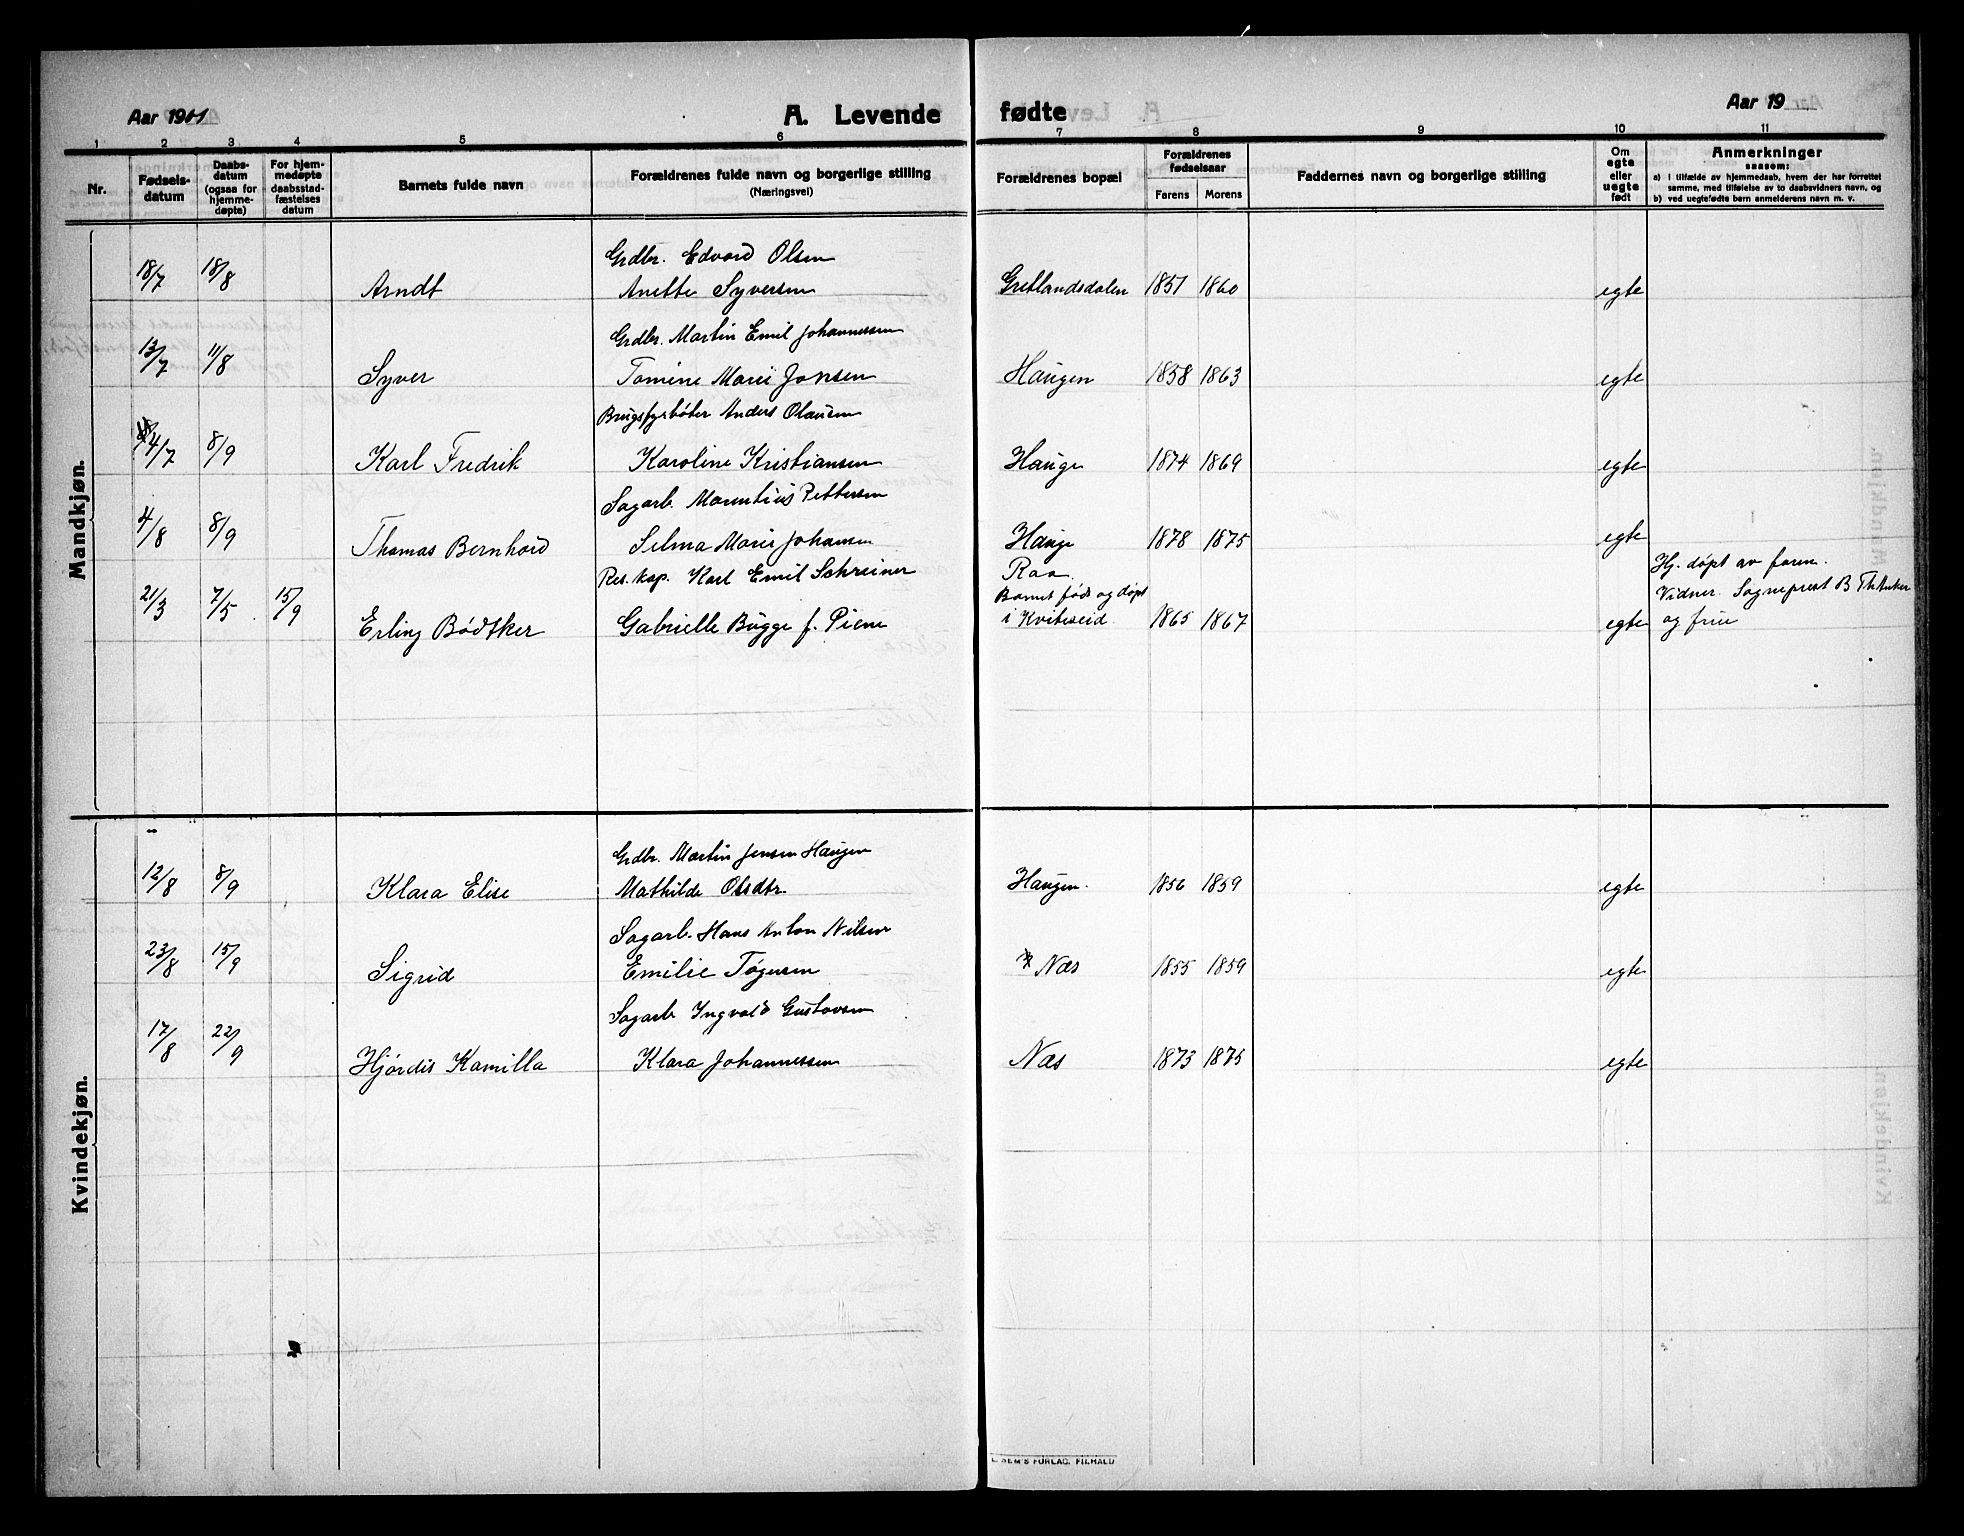 Aar 1901
A. Levende
fødte
Aar 19
1 2 3 4 5 6 7 8 9 10 11
Nr.
Fødsels-
datum
Daabs-
datum
(ogsaa for
hjemme-
døpte)
For hjem-
medøpte
daabsstad-
fæstelses
datum
Barnets fulde navn
Forældrenes fulde navn og borgerlige stilling
(Næringsvei)
Forældrenes bopæl
Forældrenes
fødselsaar
Farens Morens
Faddernes navn og borgerlige stilling
Om
egte
eller
uegte
født
Anmerkninger
saasom:
a) i tilfælde av hjemmedaab, hvem der har forrettet
samme, med tilføielse av to daabsvidners navn, og
b) ved uegtefødte barn anmelderens navn m. v.
Mandkjøn.
Grdbr. Edvard Olsen
18/7 18/8 Arndt Anette Syversen Gretlandsdalen 1851 1860 egte
Grdbr. Martin Emil Johannessen
13/7 11/8 Syver Tomine Marie Jonsen Haugen 1858 1863 egte
Brugsfyrbøter Anders Olausen
4/7 8/9 Karl Fredrik Karoline Kristiansen Hauge 1874 1869 egte
Sagarb. Marentius Pettersen
4/8 8/9 Thomas Bernhard Selma Marie Johansen Hauge 1878 1875 egte
Res. kap. Karl Emil Schreiner Raa. Hj. døpt av faren.
Barnet født og døpt Vidner. Sogneprest B Th Anker
21/3 7/5 15/9 Erling Bødtker Gabrielle Bugge f. Piene i Kviteseid 1865 1867 egte og frue
Kvindekjøn.
Grdbr. Martin Jensen Haugen
12/8 8/9 Klara Elise Mathilde Olsdtr. Haugen. 1856 1859 egte
Sagarb. Hans Anton Nilsen
23/8 15/9 Sigrid Emilie Tøgersen Næs 1855 1859 egte
Sagarb Ingvald Gustavsen
17/8 22/9 Hjørdis Kamilla Klara Johannessen Næs 1873 1875 egte
SEM'S FORLAG, F.HALD